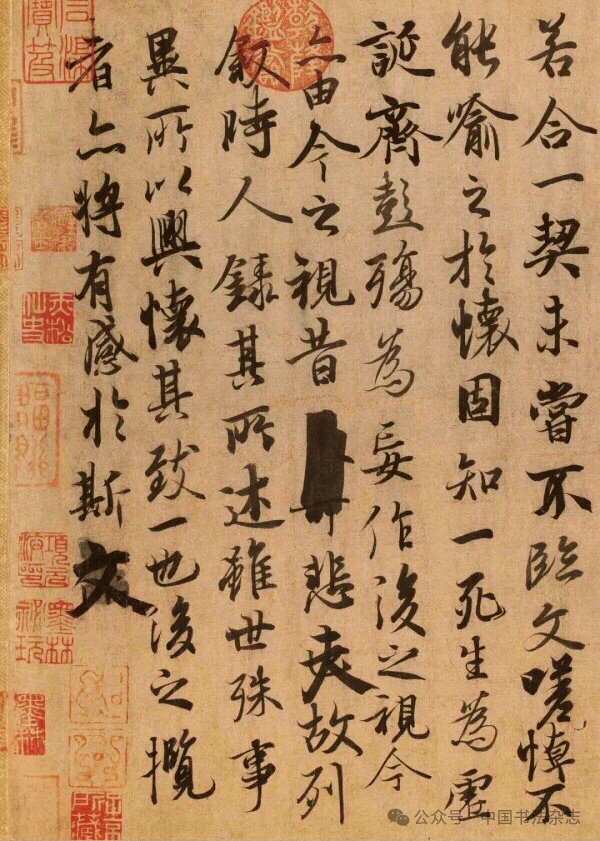 若合一契未嘗不臨文嗟悼不
能喻之於懷固知一死生為虛
誕齊彭殤為妄作後之視今
亦由今之視昔悲夫故列
叙時人錄其所述雖世殊事
異所以興懷其致一也後之攬
者亦將有感於斯文
墨林祕玩
公众号·中国书法杂志